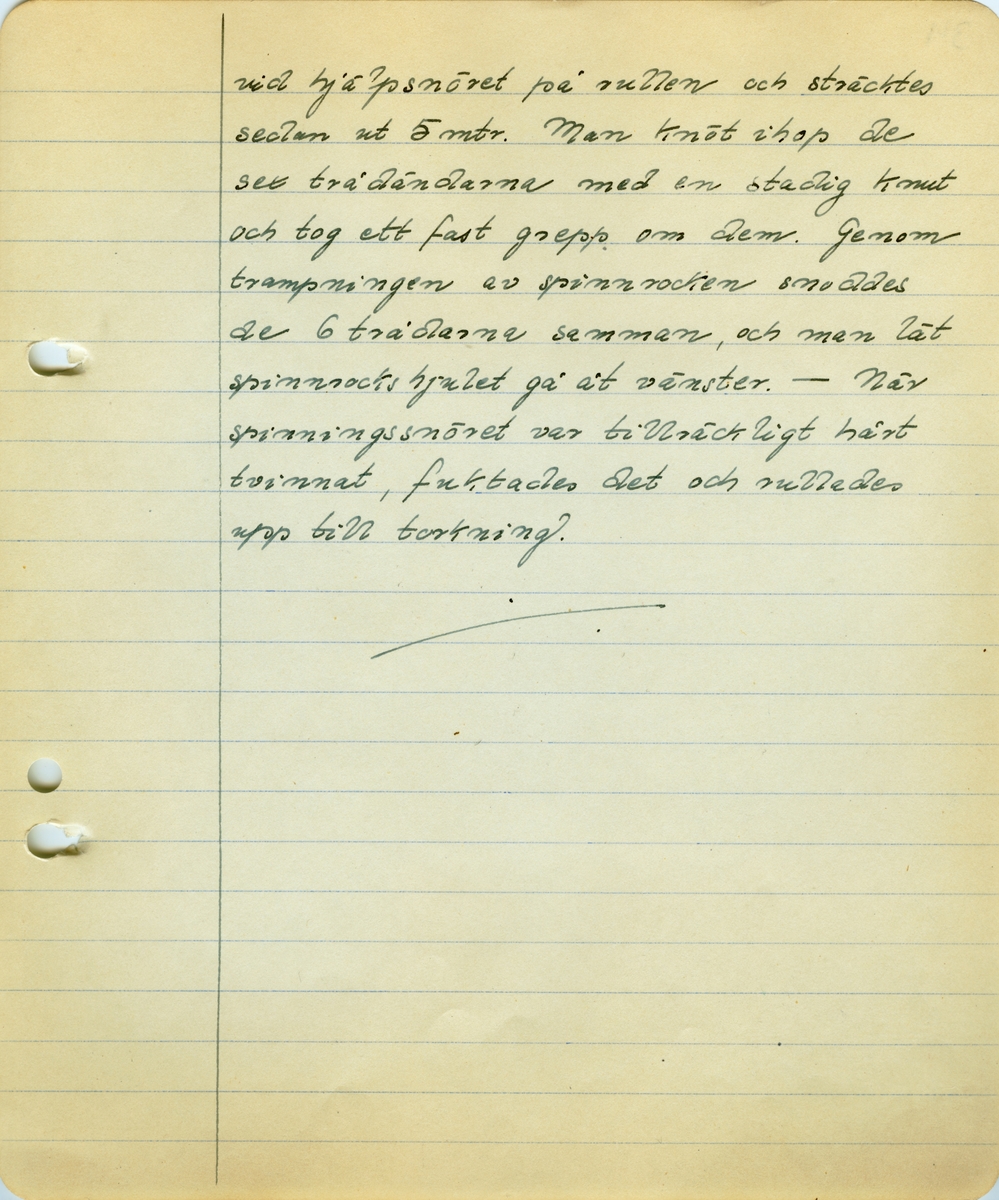 vid hjälpsnöret på rullen och sträcktes
sedan ut 5 mtr. Man knöt ihop de
sex trådändarna med en stadig knut
och tog ett fast grepp om dem. Genom
trampningen av spinnrocken snoddes
de 6 trådarna samman, och man lät
spinnrockshjulet gå åt vänster. — När
spinningssnöret var tillräckligt hårt
tvinnat, fuktades det och rullades
upp till torkning.